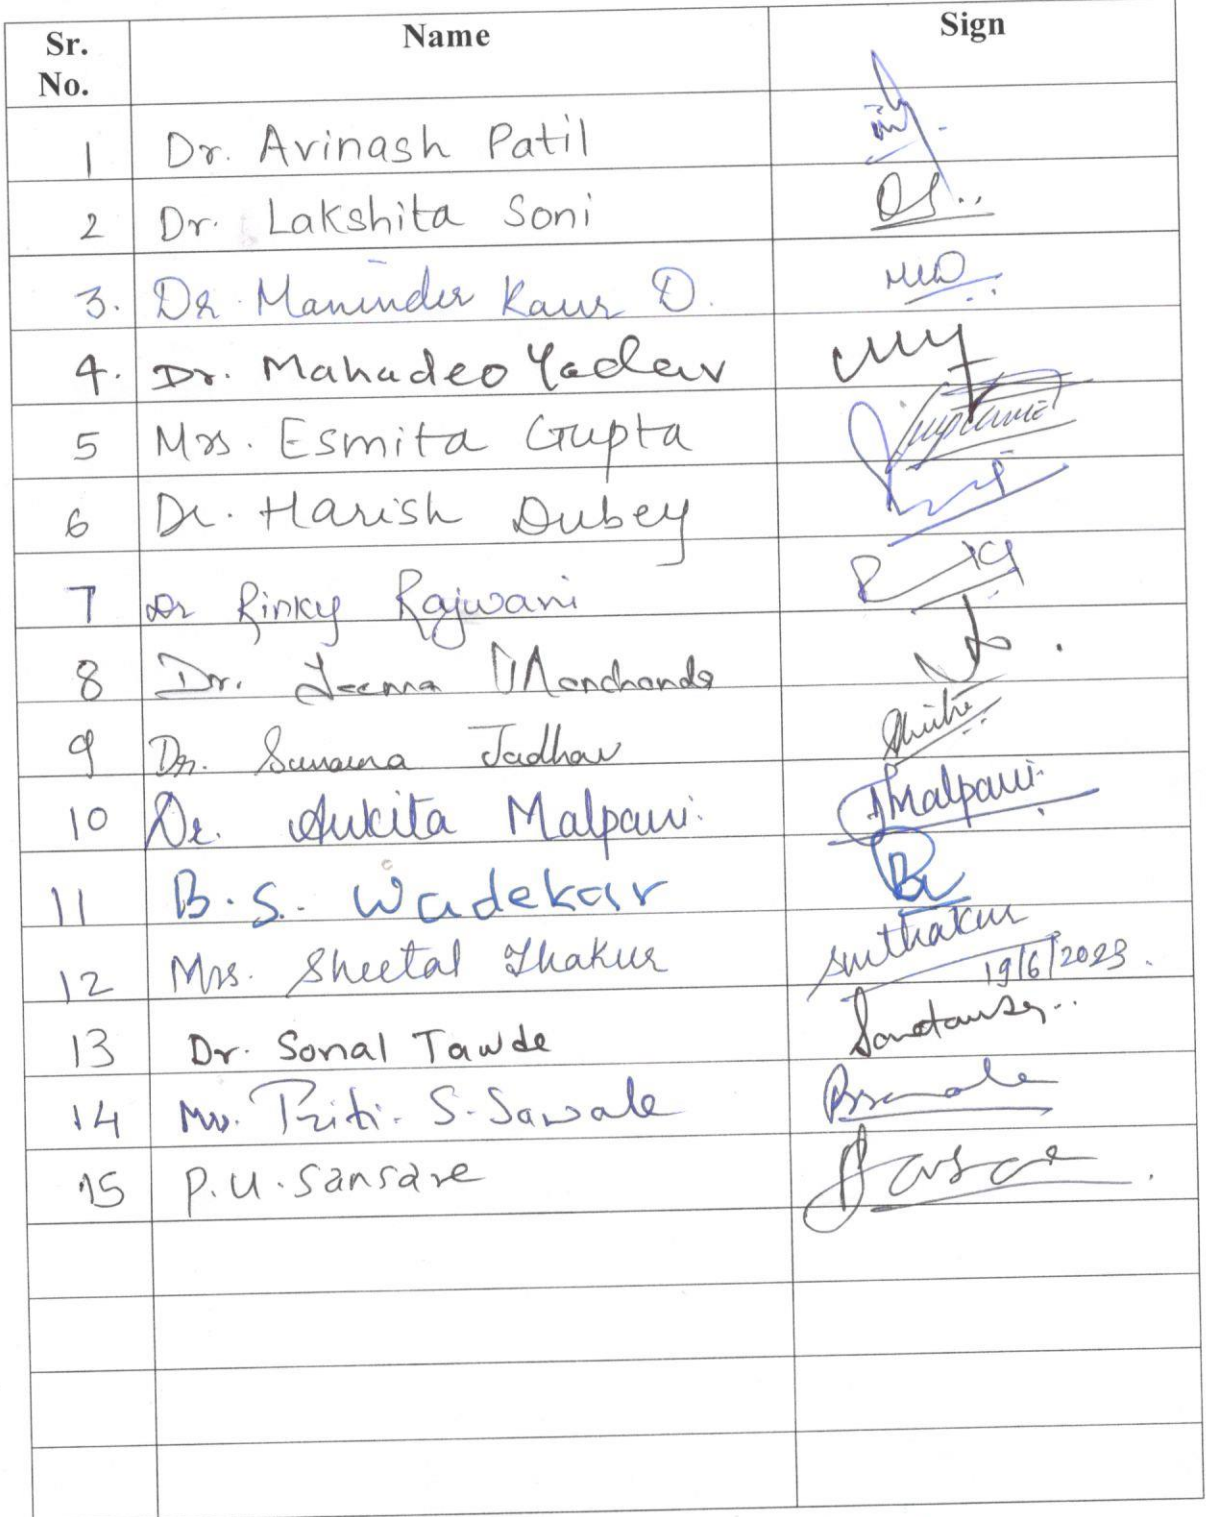 Sr. No. Name Sign
1 Dr. Avinash Patil
2 Dr. Lakshita Soni
3. Dr. Maninder Kaur D.
4. Dr. Mahadeo Yadav
5 Mrs. Esmita Gupta
6 Dr. Harish Dubey
7 Dr Rinky Rajwani
8 Dr. Manchanda
9 Dr. Jadhav
10 Dr. Ankita Malpani. Malpani
11 B.S. Wadekar
12 Mrs. Sheetal Thakur smthakur
19/6/2023.
13 Dr. Sonal Tawde
14 Priti. S. Sawale
15 P.U. Sansare